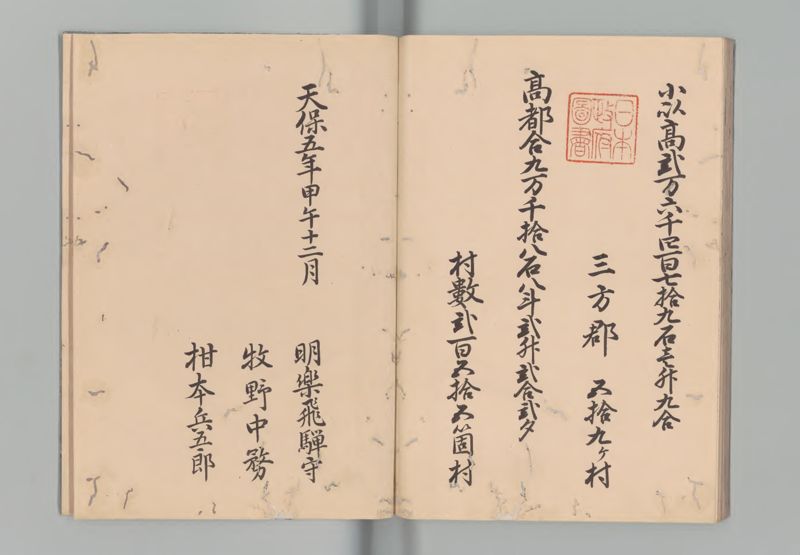 小以高弐万六千四百七拾九石壱升九合
三方郡　五拾九ケ村
日本
政府
圖書
高都合九万千拾八石八斗弐升弐合弐夕
村數弐百五拾五箇村
天保五年甲午十二月
明樂飛騨守
牧野中務
柑本兵五郎